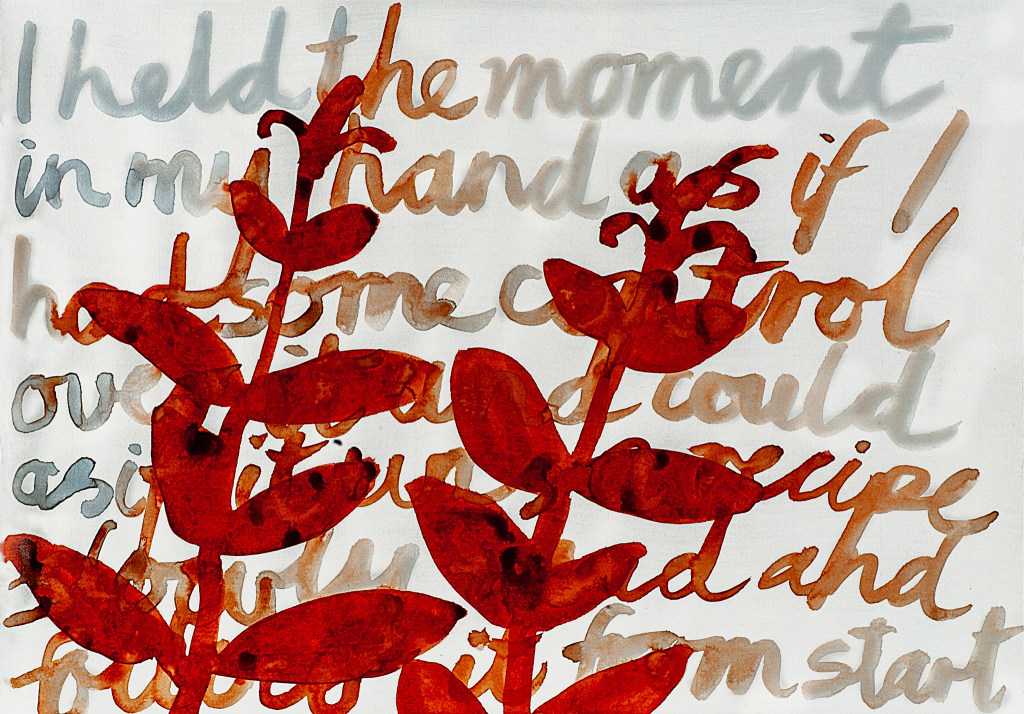 I held the moment
in my hand as if I
had some control
over it and could
as if it was a recipe
slowly read and
follow it from start